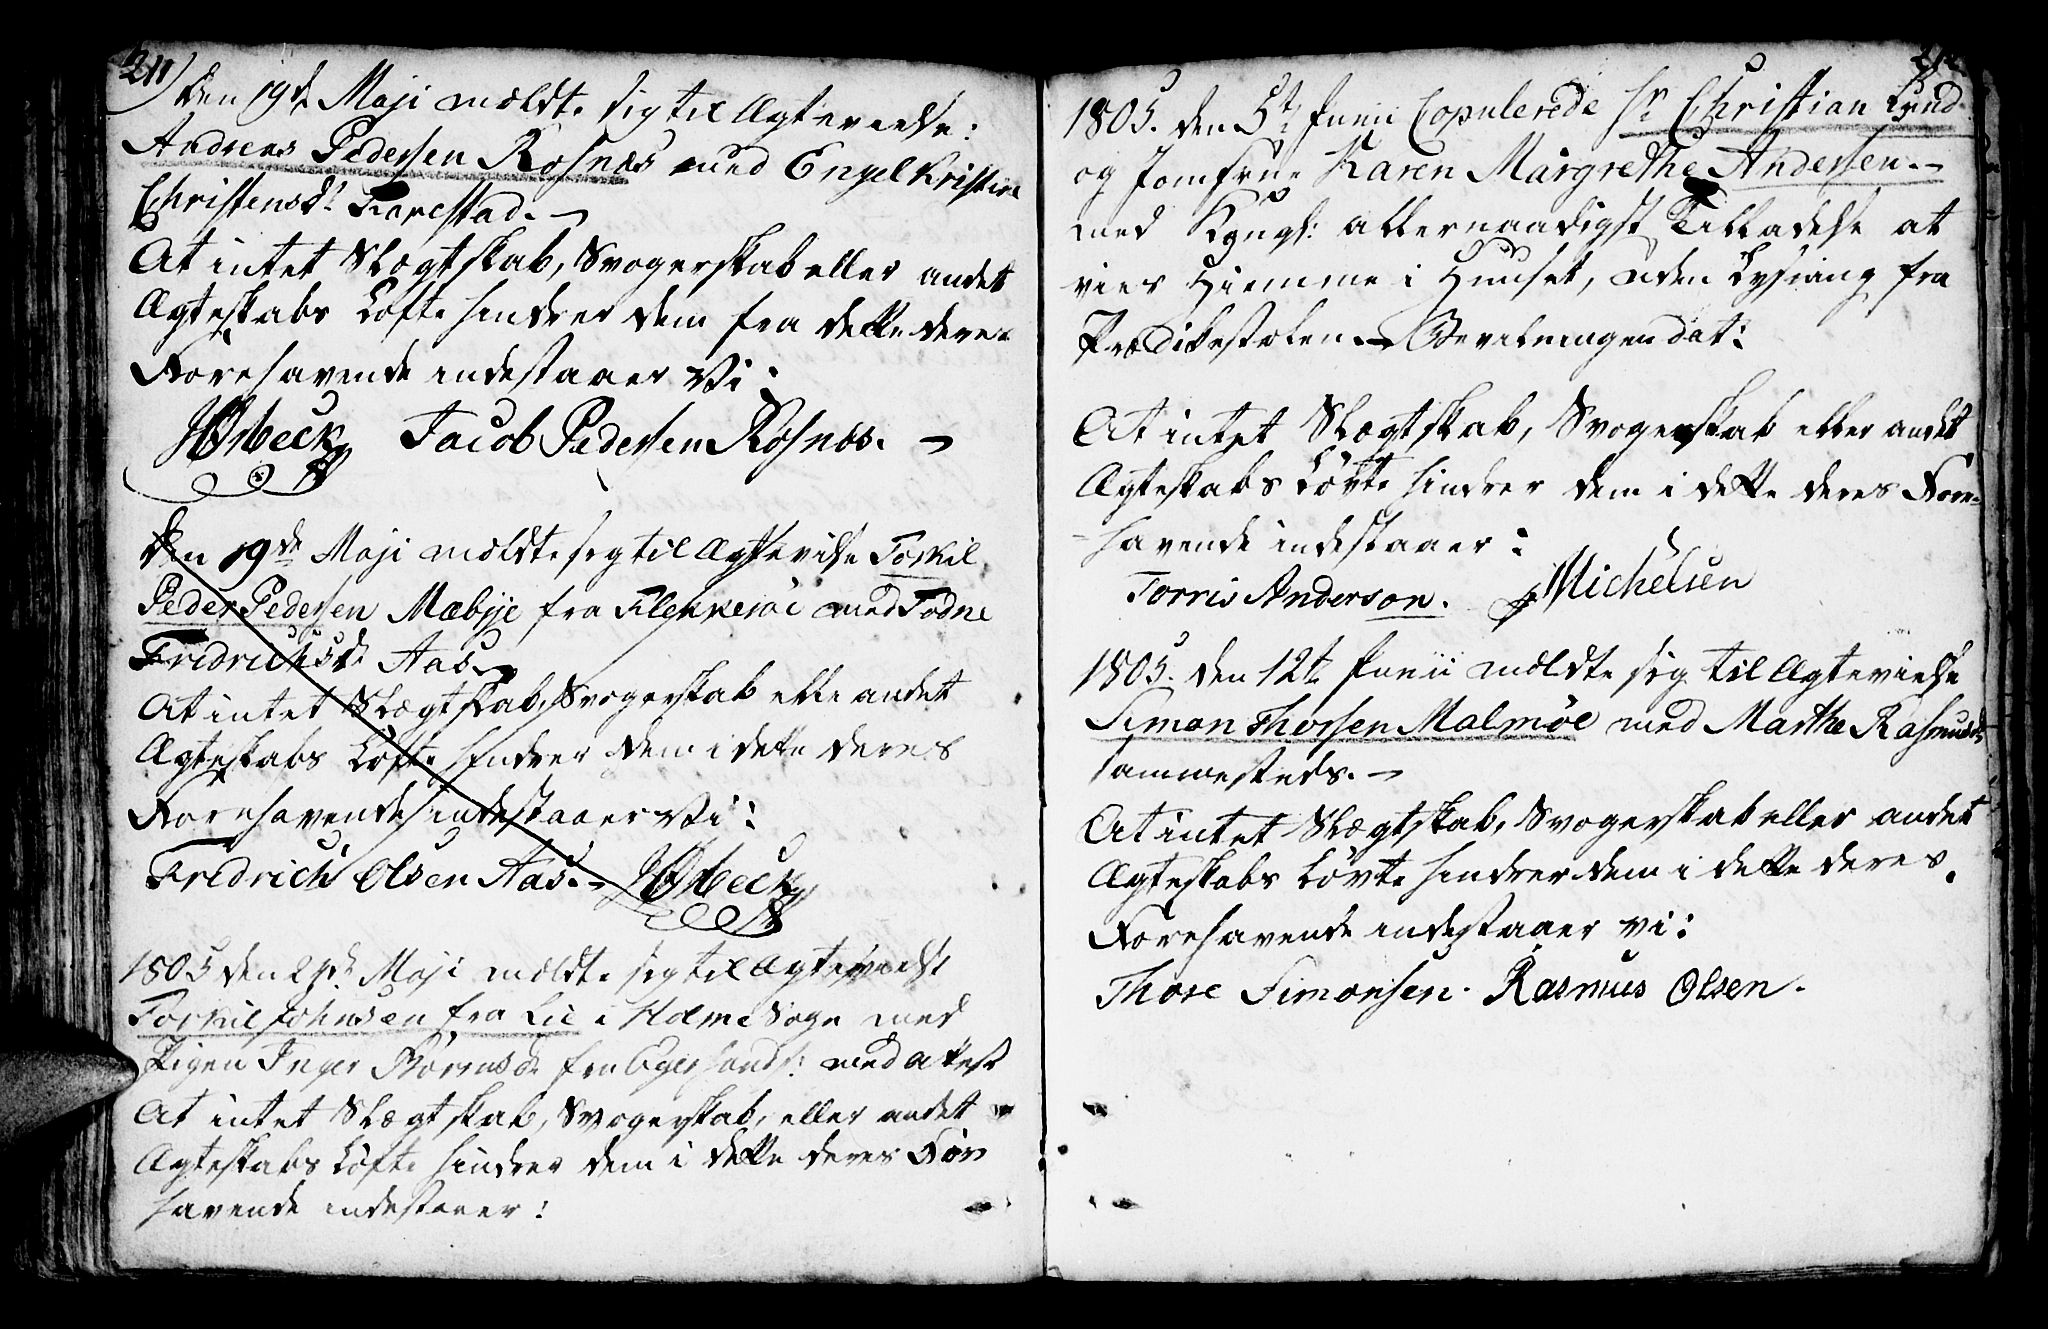 211)
den 19de Maji meldte sig til Ægtevielse:
Andreas Pedersen Rosnæs med Engel Kristine
Christensdr Farestad.
At intet Slægtskab, Svogerskab eller andet
Ægteskabs Løfte hindrer dem fra dette deres
Forehavende indestaaer Vi:
Jacob Pedersen Rosnæs.
Den 19de Maji meldte sig til Ægtevielse Torkil
Peder Pedersen Mæbye fra Flekkerøe med Todne
Fridrichsdr Aas.
At intet Slægtskab, Svogerskab elle andet
Ægteskabs Løfte hindrer dem i dette deres
Forehavende indestaaer Vi:
Fredrich Olsen Aas.
1805 den 21de Maji meldte sig til Ægtevielse
Torkil Johnsen fra Lie i Holme Sogn med
Pigen Inger fra med attest
At intet Slægtskab, Svogerskab, eller andet
Ægteskabs Løfte hindrer dem i dette deres Fore
havende indestaaer:
212
1805. den 5te Junii Copulerede Hr Christian Lund
og Jomfrue Karen Margrethe Andersen.
med Kongl: allernaadigst Tilladelse at
vies Hiemme i Huuset, uden Lysning fra
Prædikestolen. Bevilningen dat:
At intet Slægtskab, Svogerskab eller andet
Ægteskabs Løvte hindrer dem i dette deres Fore-
-havende indestaaer:
Torris Anderson. Michelsen
1805. den 12te Junii meldte sig til Ægtevielse
Simon Thorsen Malmøe med Marthe Rasmusdr
sammesteds.
At intet Slægtskab, Svogerskab eller andet
Ægteskabs Løvte hindrer dem i dette deres
Forehavende indestaaer vi:
Thore Simonsen. Rasmus Olsen.